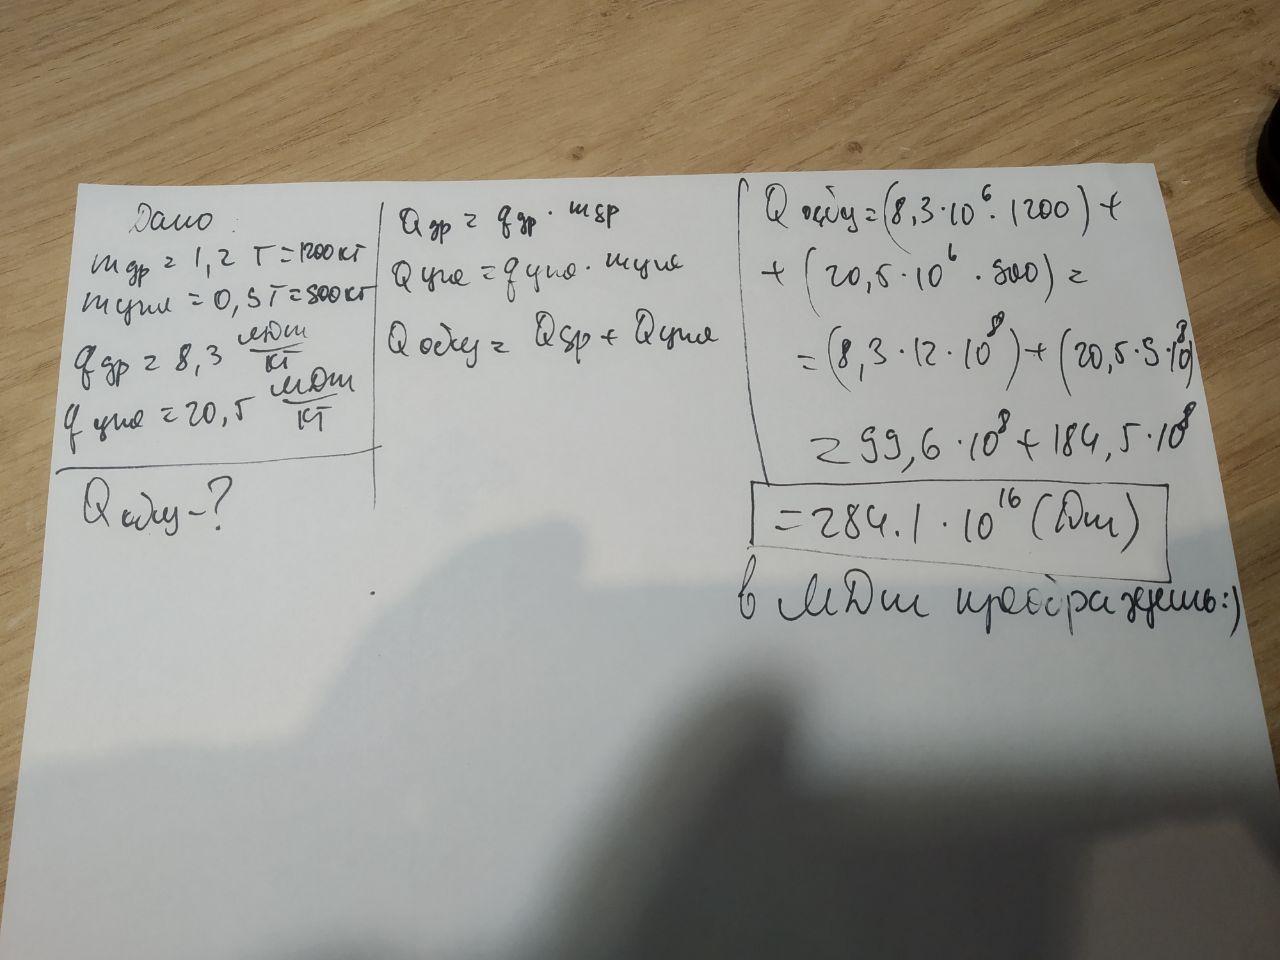 Дано:
mдр = 1,2 т = 1200 кг
mугл = 0,9 т = 900 кг
qдр = 8,3 МДж/кг
qугл = 20,5 МДж/кг
Qобщ - ?
Qдр = qдр · mдр
Qугл = qугл · mугл
Qобщ = Qдр + Qугл
Qобщ = (8,3·10⁶·1200) +
+ (20,5·10⁶·900) =
= (8,3·12·10⁸) + (20,5·9·10⁸)
= 99,6·10⁸ + 184,5·10⁸
= 284.1·10¹⁶ (Дж)
в МДж преобразуешь:)